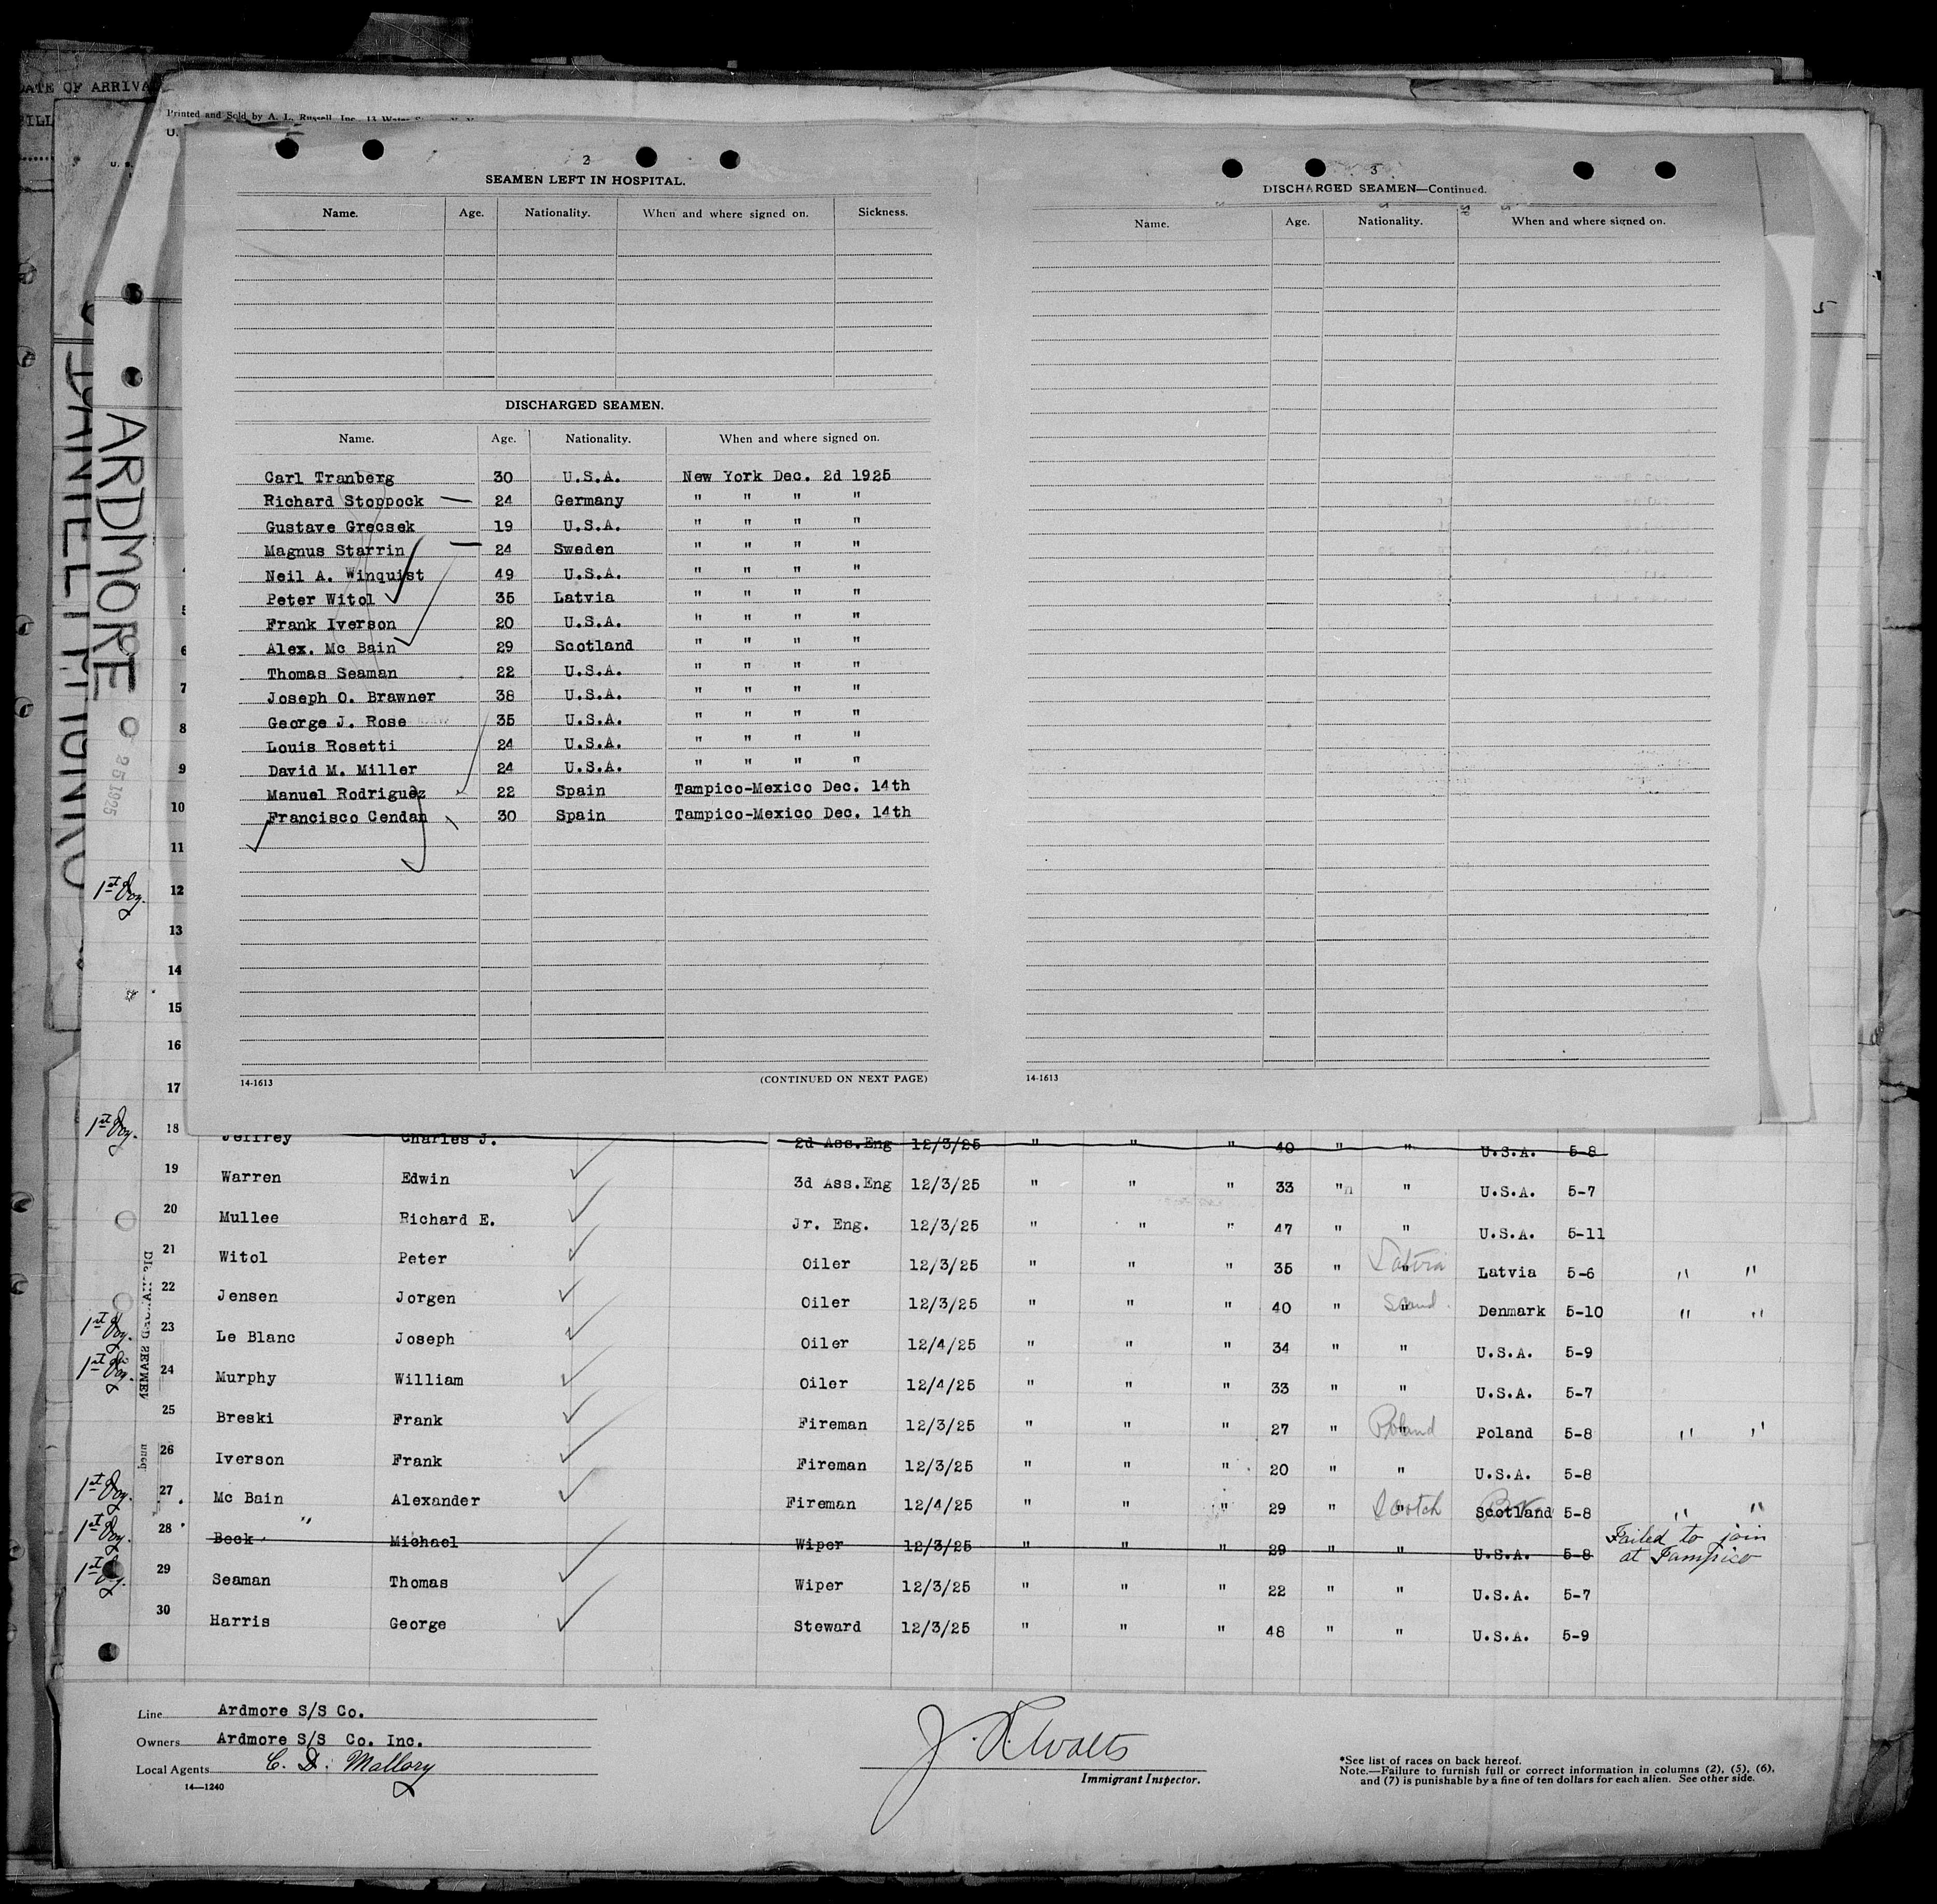 DATE OF ARRIVAL
Printed and Sold by A. L. Russell, Inc.
2
SEAMEN LEFT IN HOSPITAL.
Name. Age. Nationality. When and where signed on. Sickness.
DISCHARGED SEAMEN.
Name. Age. Nationality. When and where signed on.
Carl Tranberg 30 U.S.A. New York Dec. 2d 1925
Richard Stoppock 24 Germany " " " "
Gustave Grecsek 19 U.S.A. " " " "
Magnus Starrin 24 Sweden " " " "
Neil A. Winquist 49 U.S.A. " " " "
Peter Witol 35 Latvia " " " "
Frank Iverson 20 U.S.A. " " " "
Alex. Mc Bain 29 Scotland " " " "
Thomas Seaman 22 U.S.A. " " " "
Joseph O. Brawner 38 U.S.A. " " " "
George J. Rose 35 U.S.A. " " " "
Louis Rosetti 24 U.S.A. " " " "
David M. Miller 24 U.S.A. " " " "
Manuel Rodriguez 22 Spain Tampico-Mexico Dec. 14th
Francisco Cendan 30 Spain Tampico-Mexico Dec. 14th
14-1613 (CONTINUED ON NEXT PAGE)
3
DISCHARGED SEAMEN—Continued.
Name. Age. Nationality. When and where signed on.
14-1613
ARDMORE
5
6
7
8
9
10
11
1st Voy. 12
13
14
15
16
17
1st Voy. 18 Jeffrey Charles J. 2d Ass.Eng 12/3/25 " " " 40 " " U.S.A. 5-8
19 Warren Edwin 3d Ass.Eng 12/3/25 " " " 33 " " U.S.A. 5-7
20 Mullee Richard E. Jr. Eng. 12/3/25 " " " 47 " " U.S.A. 5-11
21 Witol Peter Oiler 12/3/25 " " " 35 " " Latvia Latvia 5-6 " "
22 Jensen Jorgen Oiler 12/3/25 " " " 40 " " Scand. Denmark 5-10 " "
1st Voy. 23 Le Blanc Joseph Oiler 12/4/25 " " " 34 " " U.S.A. 5-9
1st Voy. 24 Murphy William Oiler 12/4/25 " " " 33 " " U.S.A. 5-7
25 Breski Frank Fireman 12/3/25 " " " 27 " " Poland Poland 5-8 " "
26 Iverson Frank Fireman 12/3/25 " " " 20 " " U.S.A. 5-8
1st Voy. 27 Mc Bain Alexander Fireman 12/4/25 " " " 29 " " Scotch Scotland 5-8 " "
1st Voy. 28 Beck " Michael Wiper 12/3/25 " " " 29 " " U.S.A. 5-8 Failed to join at Tampico
1st Voy. 29 Seaman Thomas Wiper 12/3/25 " " " 22 " " U.S.A. 5-7
30 Harris George Steward 12/3/25 " " " 48 " " U.S.A. 5-9
Line Ardmore S/S Co.
Owners Ardmore S/S Co. Inc.
Local Agents C. D. Mallory
14—1240
Immigrant Inspector.
*See list of races on back hereof.
Note.—Failure to furnish full or correct information in columns (2), (5), (6),
and (7) is punishable by a fine of ten dollars for each alien. See other side.